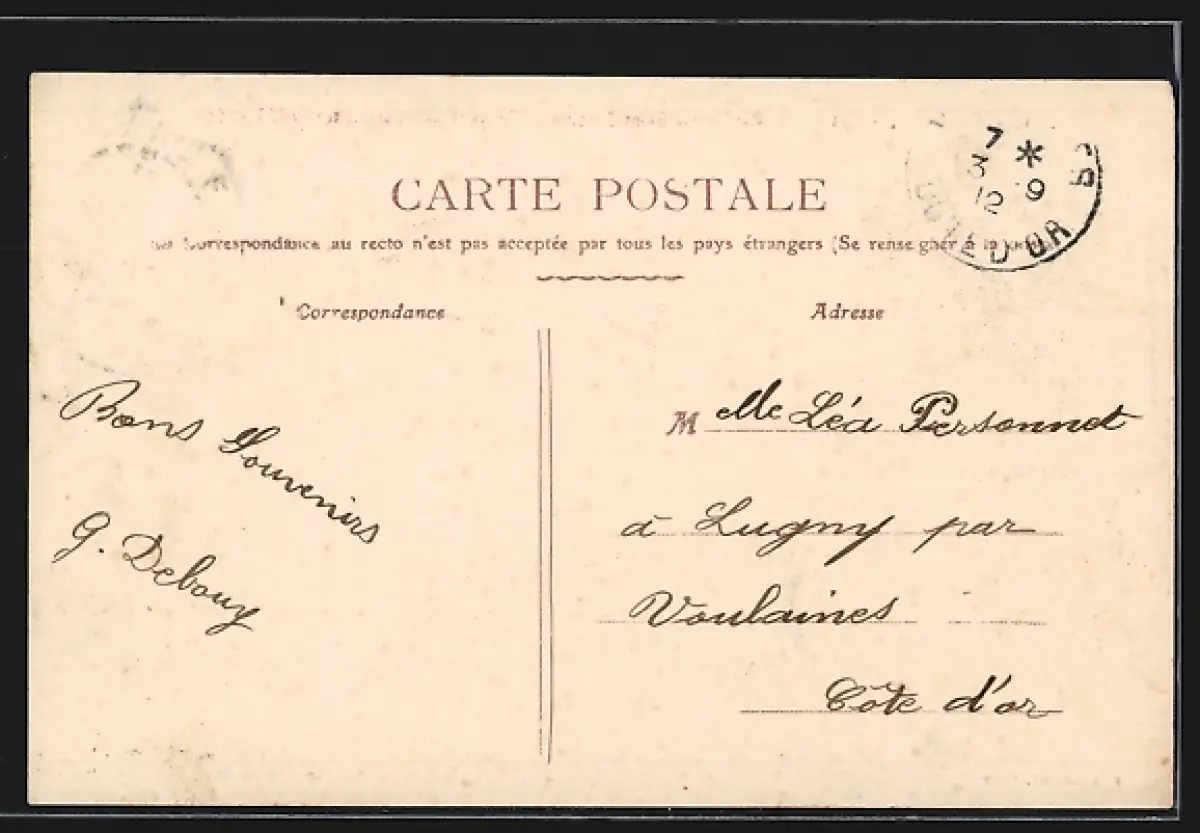 CARTE POSTALE
La Correspondance au recto n'est pas acceptée par tous les pays étrangers (Se renseigner à la
7 *
3
12 9
COTE D'OR
Correspondance
Adresse
Bons Souvenirs
G. Debouy
Melle Léa Personnet
à Lugny par
Voulaines
Côte d'or